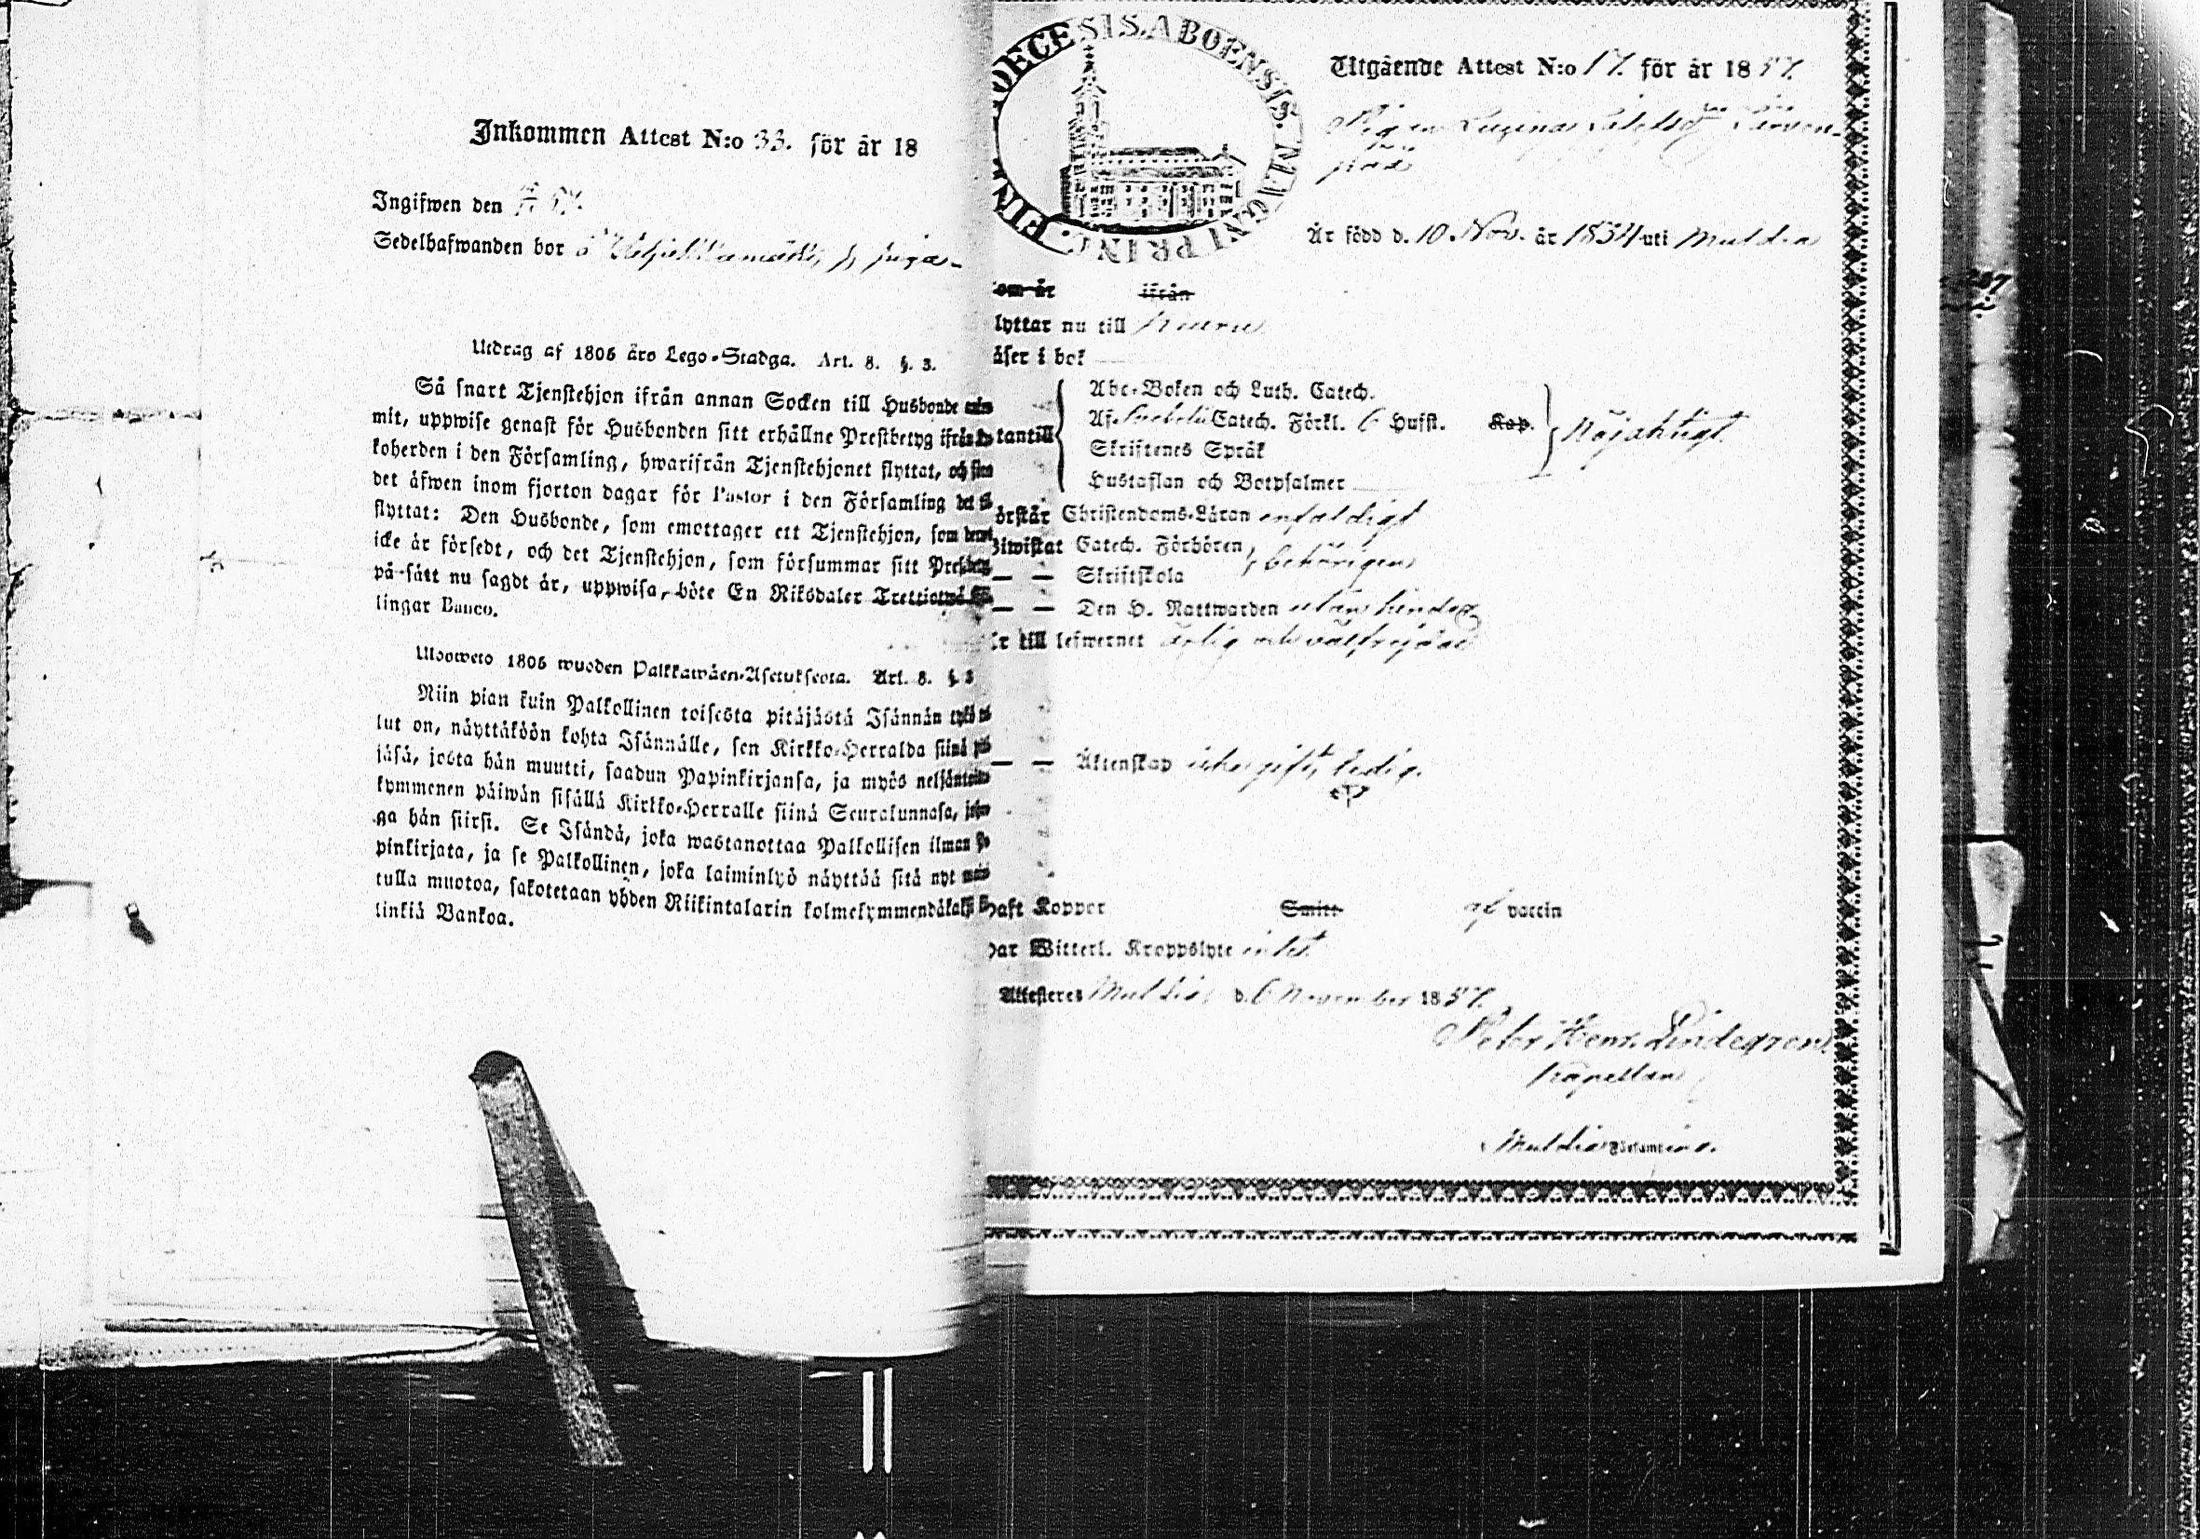 Inkommen Attest N:o 33. för år 18
Ingifwen den
Sedelhafwanden bor
Utdrag af 1805 års Lego-Stadga. Art. 8. §. 3.
Så snart Tjenstehjon ifrån annan Socken till Husbonde
mit, uppwise genast för Husbonden sitt erhållne Prestbetyg ifrån
koherden i den Församling, hwarifrån Tjenstehjonet flyttat, och
det äfwen inom fjorton dagar för Pastor i den Församling det
flyttat: Den Husbonde, som emottager ett Tjenstehjon, som
icke är försedt, och det Tjenstehjon, som försummar sitt
på sätt nu sagdt är, uppwisa, böte En Riksdaler Trettiotwå
lingar Banco.
Ulosweto 1805 wuoden Palkkawäen-Asetuksesta. Art. 8. §. 3
Niin pian kuin Palkollinen toisesta pitäjästä Isännän tykö
lut on, näyttäköön kohta Isännälle, sen Kirkko-Herralda siinä
jäsä, josta hän muutti, saadun Papinkirjansa, ja myös
kymmenen päiwän sisällä Kirkko-Herralle siinä Seurakunnasa,
ga hän siirsi. Se Isändä, joka wastanottaa Palkollisen ilman
pinkirjata, ja se Palkollinen, joka laiminlyö näyttää sitä nyt
tulla muotoa, sakotetaan yhden Riikintalarin kolmekymmendäkaksi
linkiä Bankoa.
DIOECESIS ABOENSIS. MAGNI PRINC. FIN
Utgående Attest N:o 17. för år 1857.
Pigan
Är född d. 10 Nov. är 1834 uti Muldia
om år ifrån
lyttar nu till
äser i bok
Abc-Boken och Luth. Catech.
tantill Af Svebelii Catech. Förkl. 6 Hufst. Kap. Nöjaktigt.
Skriftenes Språk
Hustaflan och Botpsalmer
örstår Christendoms-Läran enfaldigt
Biwistat Catech. Förhören, behörigen
— — Skriftskola
— — Den H. Nattwarden utan hinder
r till lefwernet ärlig och välfrejdad
— — Äktenskap icke gift, ledig.
haft Koppor Smitt af vaccin
har Witterl. Kroppslyte intet
Attesteres Muldia d. 6 November 1857.
Peter Henr. Lindegren.
Kapellan
Muldia Församling.